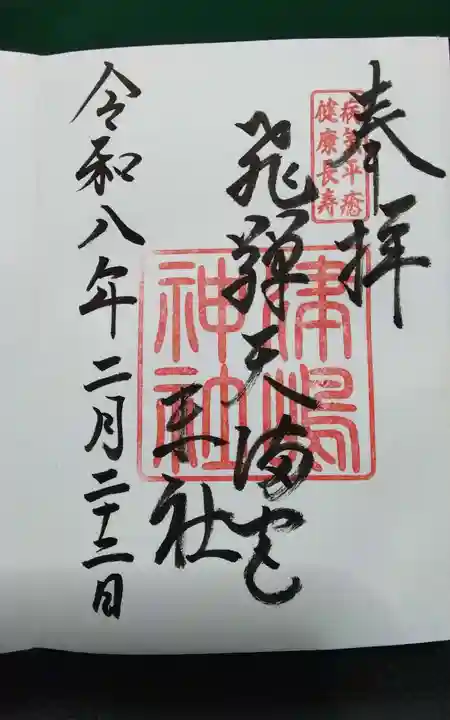 奉拝
病気平癒
健康長寿
飛騨天満宮
末社
津嶋
神社
令和八年二月二十三日